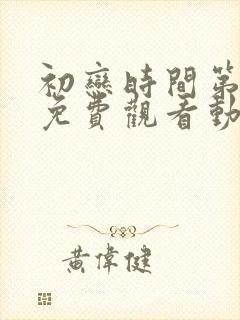 初戀時間第
免費觀看動
黃偉健